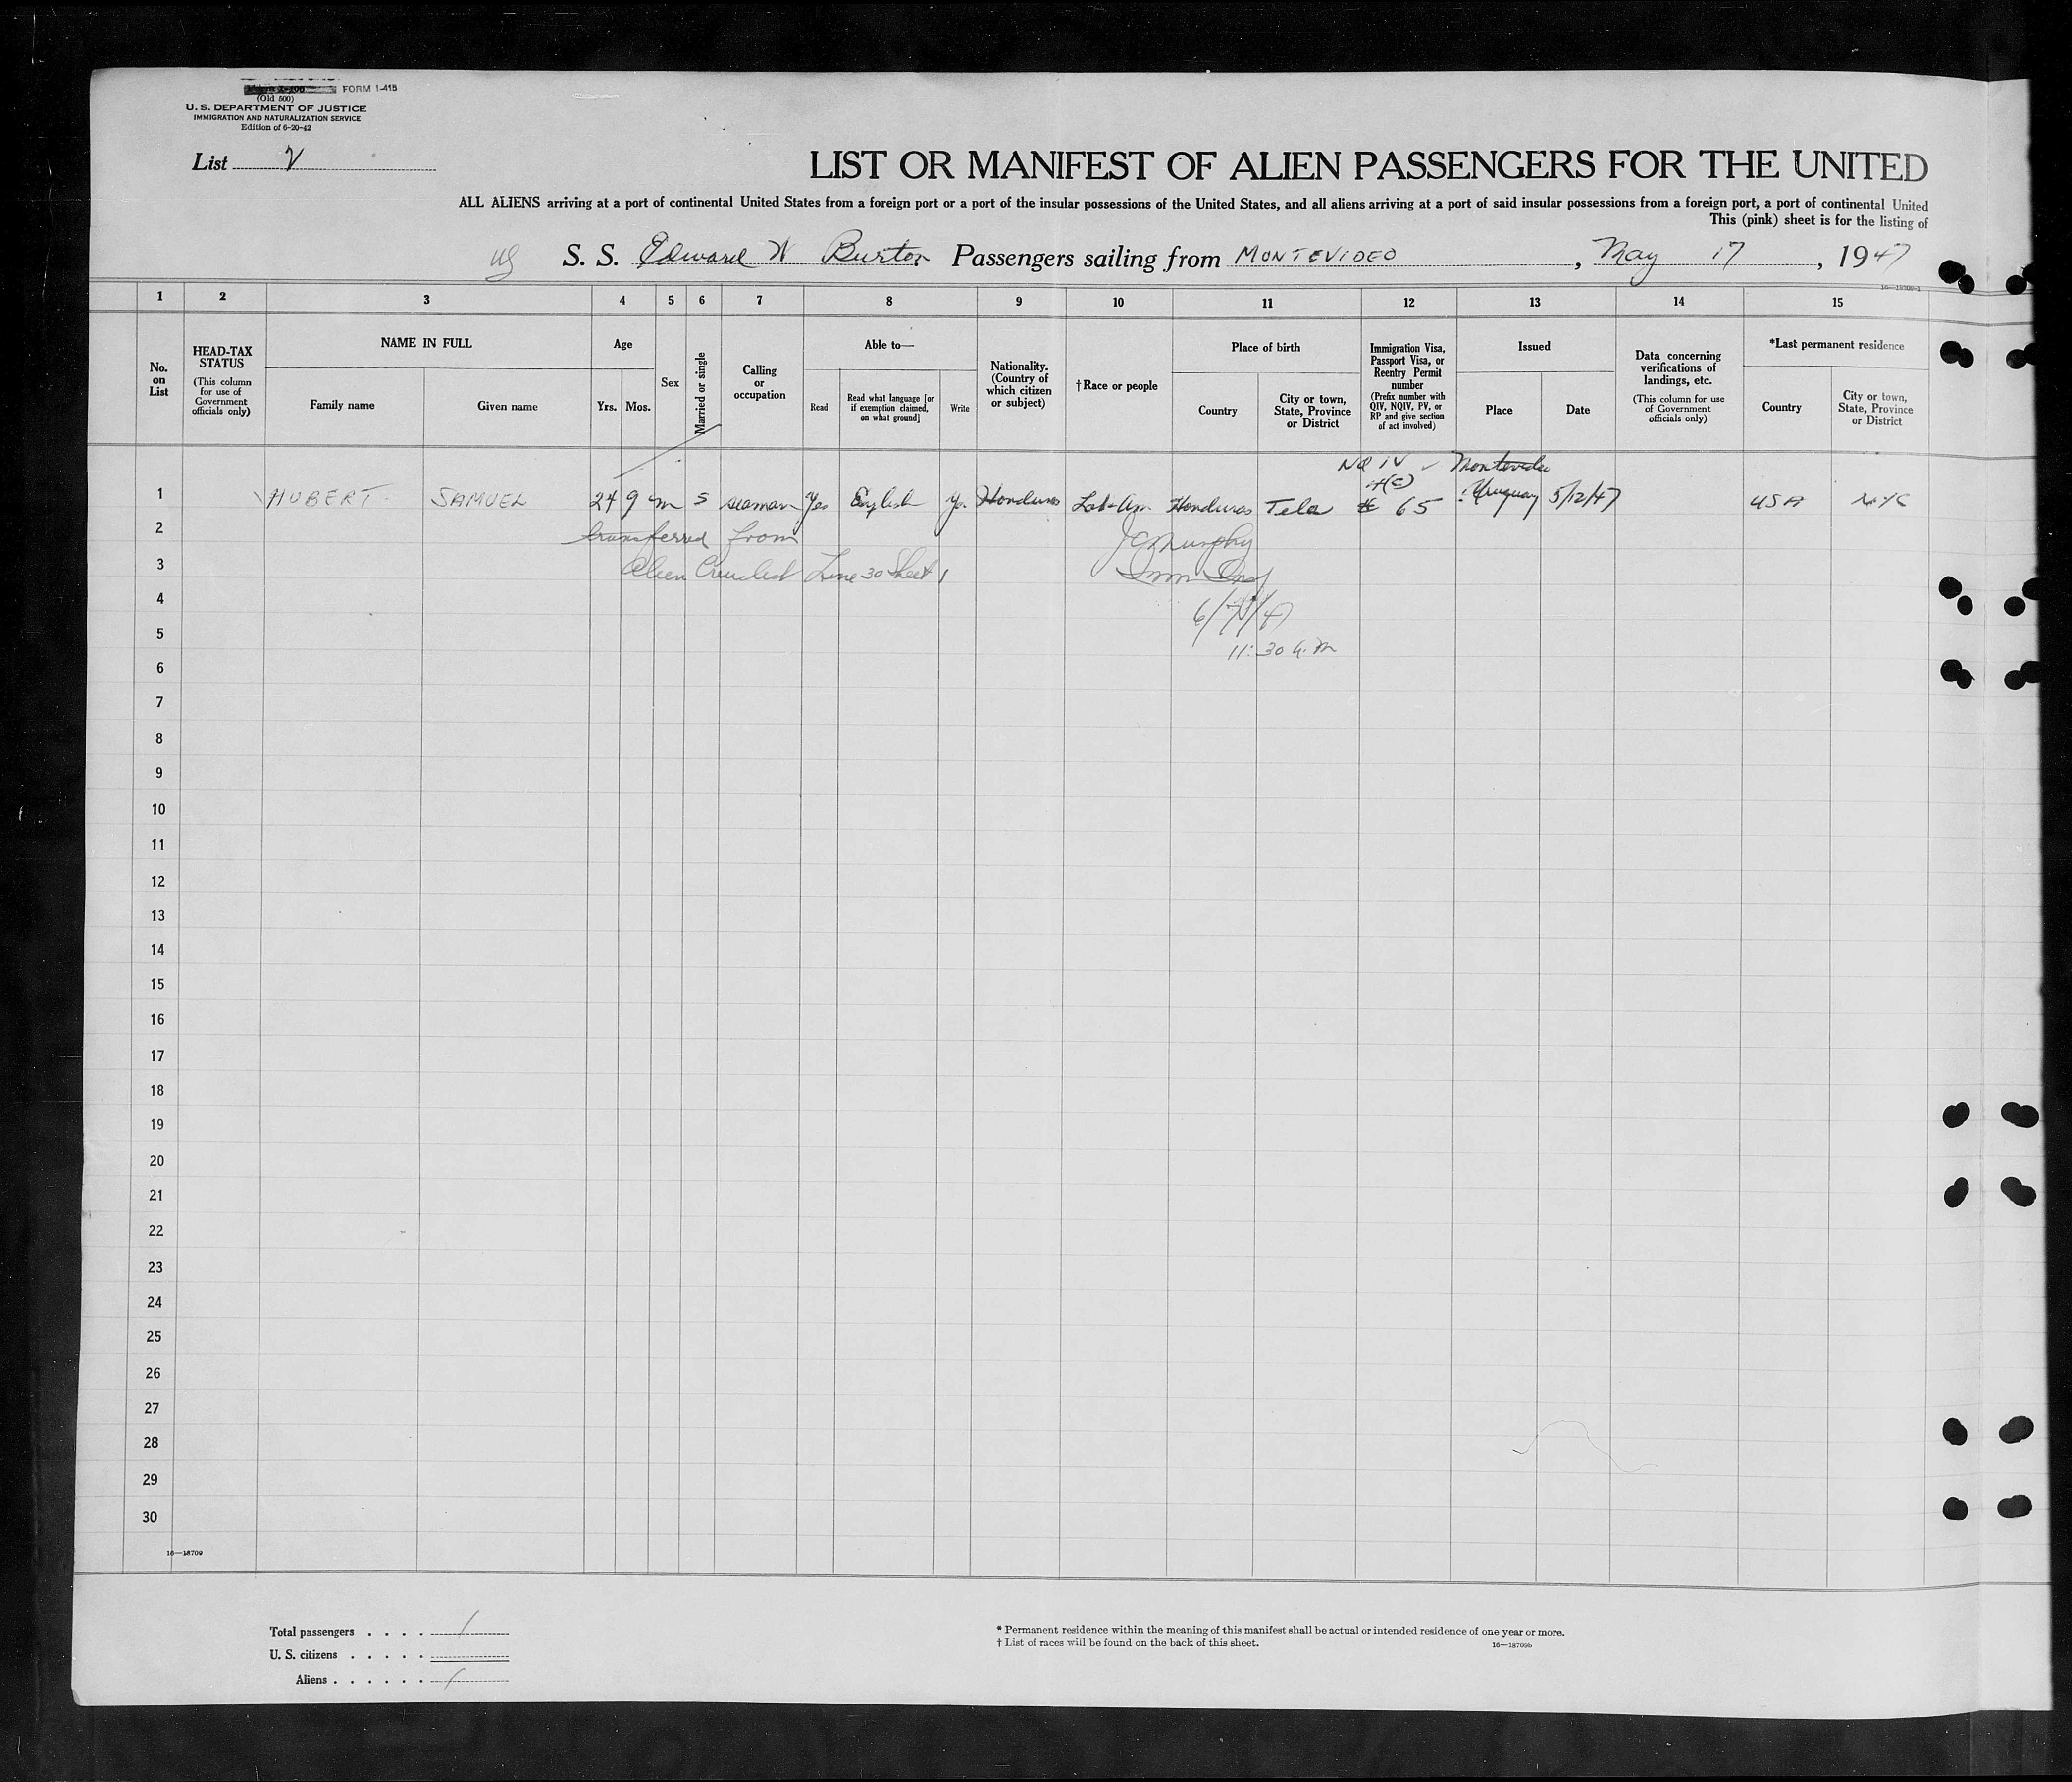 FORM I-415
(Old 500)
U. S. DEPARTMENT OF JUSTICE
IMMIGRATION AND NATURALIZATION SERVICE
Edition of 6-20-42
List 2
LIST OR MANIFEST OF ALIEN PASSENGERS FOR THE UNITED
ALL ALIENS arriving at a port of continental United States from a foreign port or a port of the insular possessions of the United States, and all aliens arriving at a port of said insular possessions from a foreign port, a port of continental United
This (pink) sheet is for the listing of
S. S. Edward W Burton Passengers sailing from MONTEVIDEO, May 17, 1947
1 2 3 4 5 6 7 8 9 10 11 12 13 14 15
No. on List
HEAD-TAX STATUS
(This column for use of Government officials only)
NAME IN FULL
Family name
Given name
Age
Yrs.
Mos.
Sex
Married or single
Calling or occupation
Able to—
Read
Read what language [or if exemption claimed, on what ground]
Write
Nationality. (Country of which citizen or subject)
†Race or people
Place of birth
Country
City or town, State, Province or District
Immigration Visa, Passport Visa, or Reentry Permit number
(Prefix number with QIV, NQIV, PV, or RP and give section of act involved)
Issued
Place
Date
Data concerning verifications of landings, etc.
(This column for use of Government officials only)
*Last permanent residence
Country
City or town, State, Province or District
NQ IV Montevideo
4(C)
1 HUBERT SAMUEL 24 9 m s seaman Yes English Yes Honduras Lat-Am Honduras Tela # 65 Uruguay 5/12/47 USA NYC
2 transferred from JC Murphy
3 Alien Crewlist Line 30 Sheet 1 Imm Insp
4
5
11:30 a.m
6
7
8
9
10
11
12
13
14
15
16
17
18
19
20
21
22
23
24
25
26
27
28
29
30
16—18709
Total passengers . . . . 1
U. S. citizens . . . . .
Aliens . . . . . . 1
* Permanent residence within the meaning of this manifest shall be actual or intended residence of one year or more.
† List of races will be found on the back of this sheet.
16—18709b